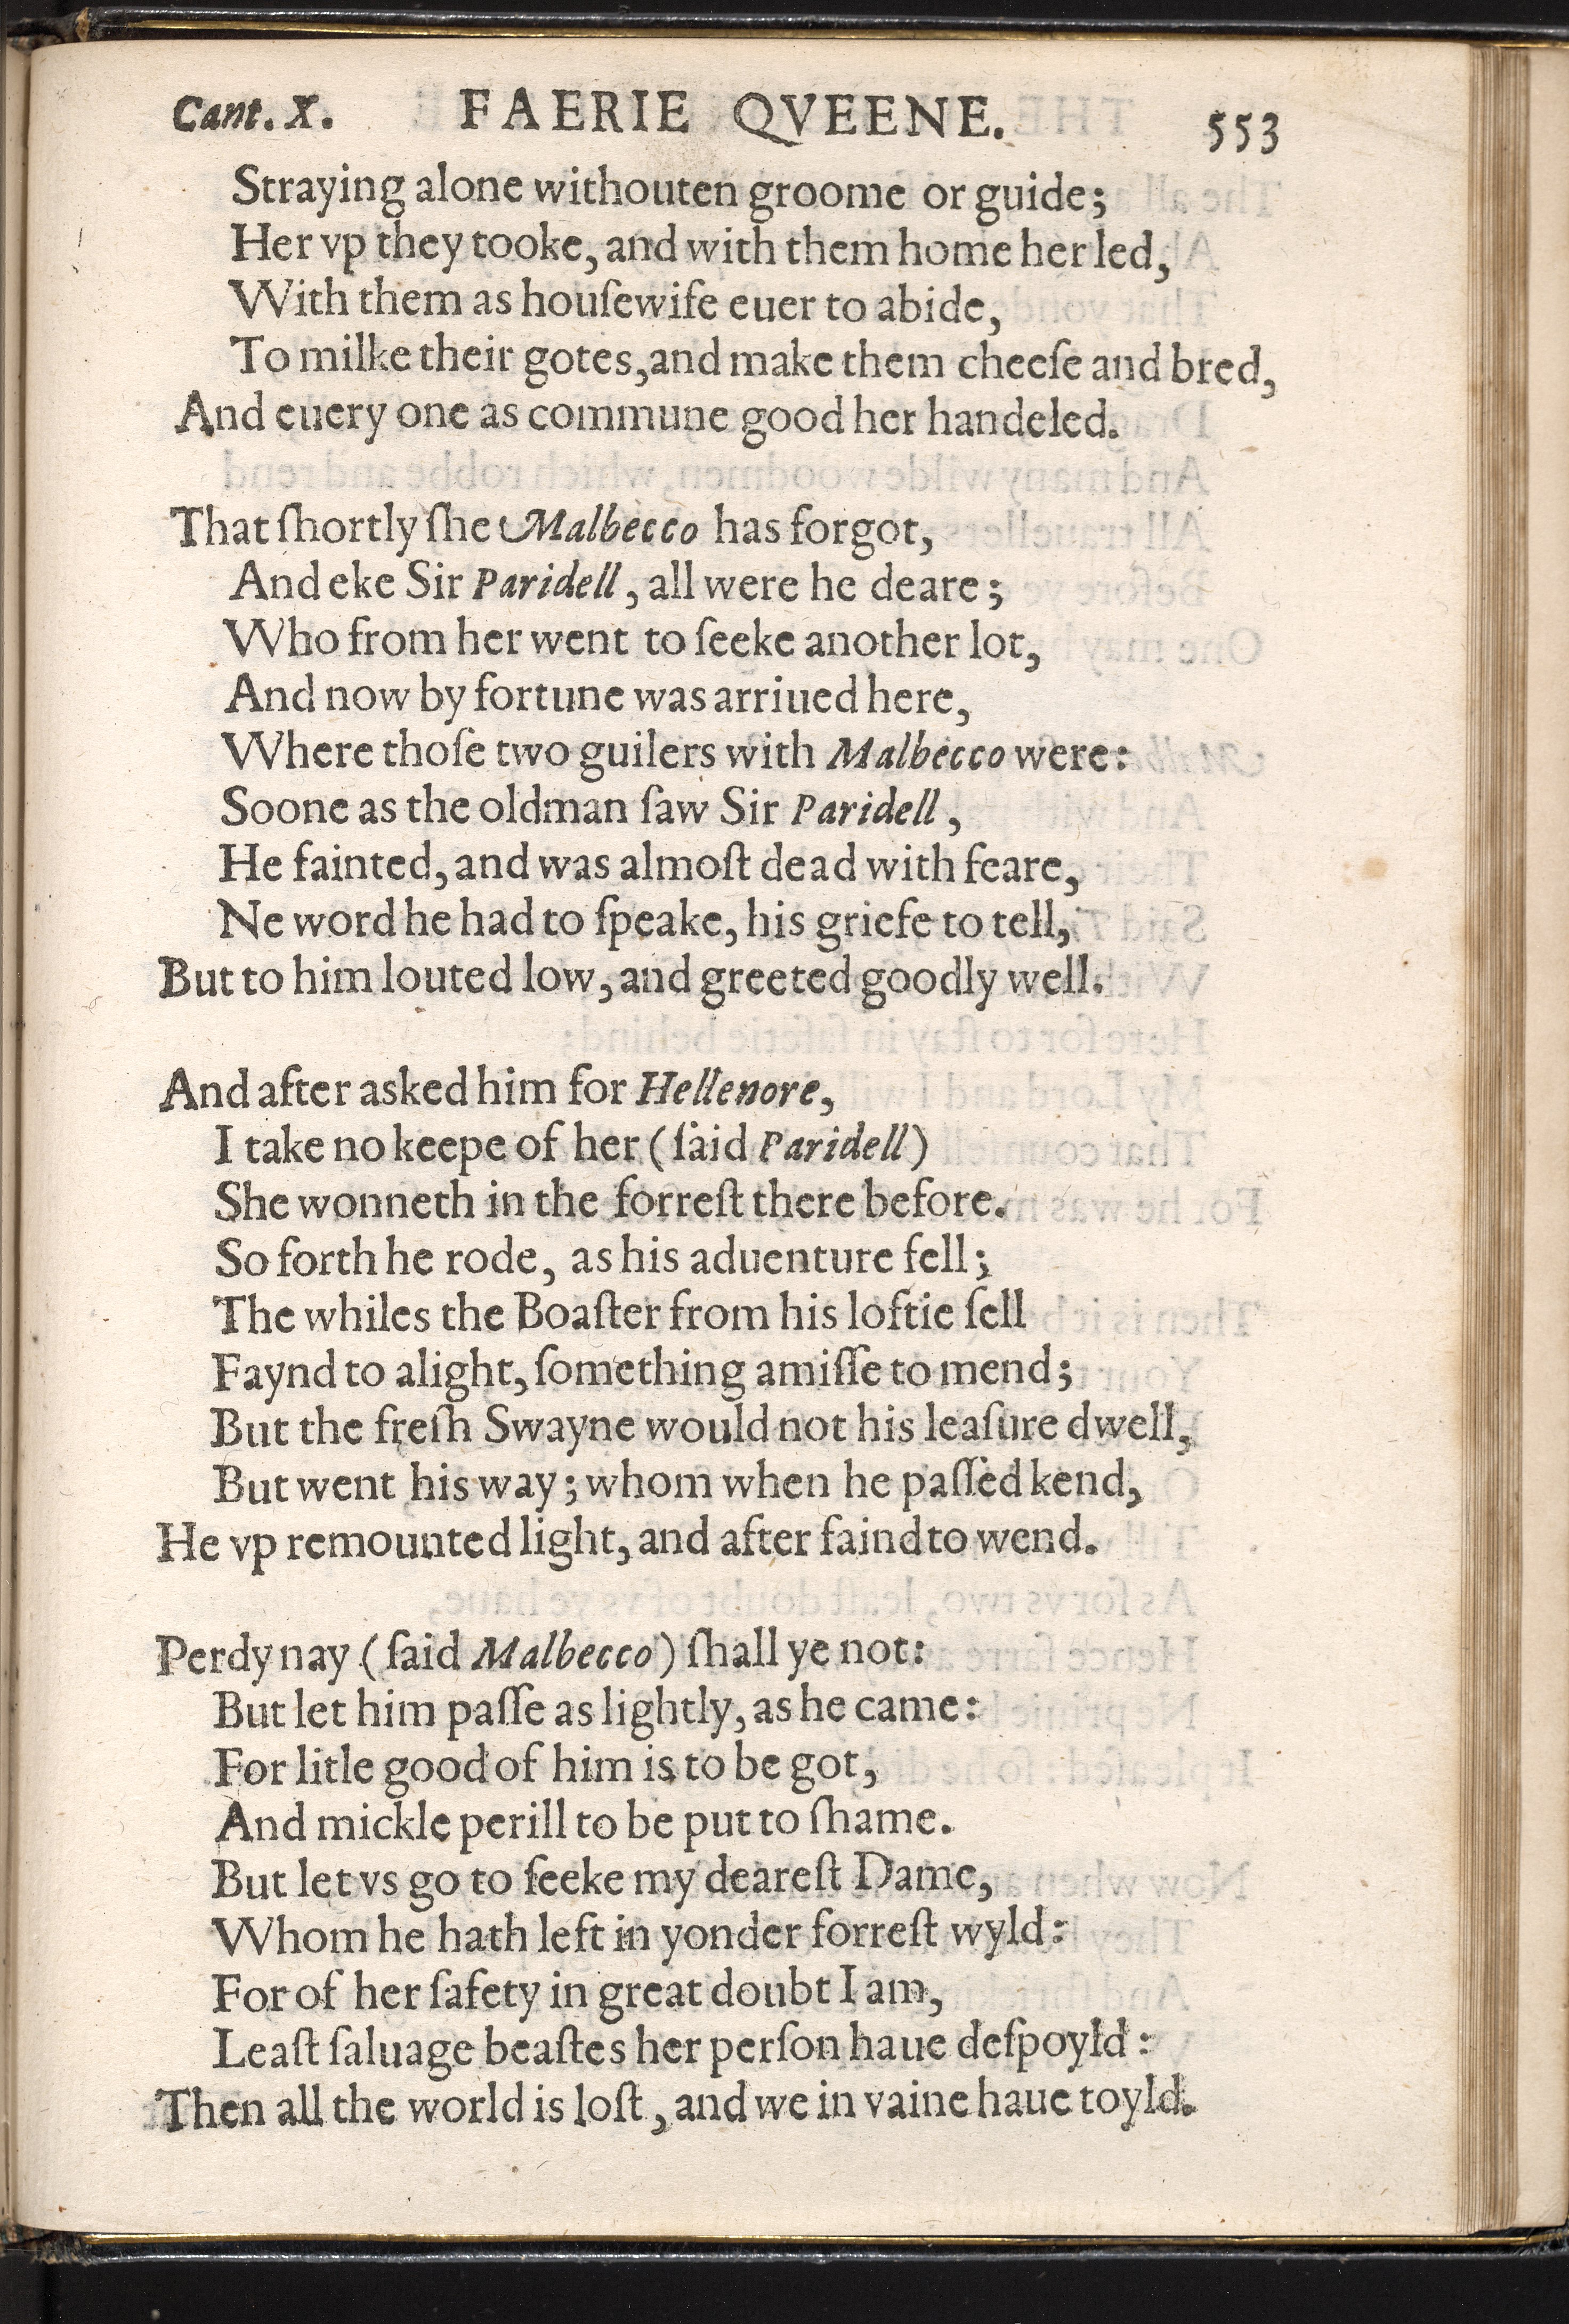 Cant. X. FAERIE QVEENE. 553
Straying alone withouten groome or guide;
Her vp they tooke, and with them home her led,
With them as houſewife euer to abide,
To milke their gotes, and make them cheeſe and bred,
And euery one as commune good her handeled.
That ſhortly ſhe Malbecco has forgot,
And eke Sir Paridell, all were he deare;
Who from her went to ſeeke another lot,
And now by fortune was arriued here,
Where thoſe two guilers with Malbecco were:
Soone as the oldman ſaw Sir Paridell,
He fainted, and was almoſt dead with feare,
Ne word he had to ſpeake, his griefe to tell,
But to him louted low, and greeted goodly well.
And after asked him for Hellenore,
I take no keepe of her (ſaid Paridell)
She wonneth in the forreſt there before.
So forth he rode, as his aduenture fell;
The whiles the Boaſter from his loftie ſell
Faynd to alight, ſomething amiſſe to mend;
But the freſh Swayne would not his leaſure dwell,
But went his way; whom when he paſſed kend,
He vp remounted light, and after faind to wend.
Perdy nay (ſaid Malbecco) ſhall ye not:
But let him paſſe as lightly, as he came:
For litle good of him is to be got,
And mickle perill to be put to ſhame.
But let vs go to ſeeke my deareſt Dame,
Whom he hath left in yonder forreſt wyld:
For of her ſafety in great doubt I am,
Leaſt ſaluage beaſtes her perſon haue deſpoyld:
Then all the world is loſt, and we in vaine haue toyld.